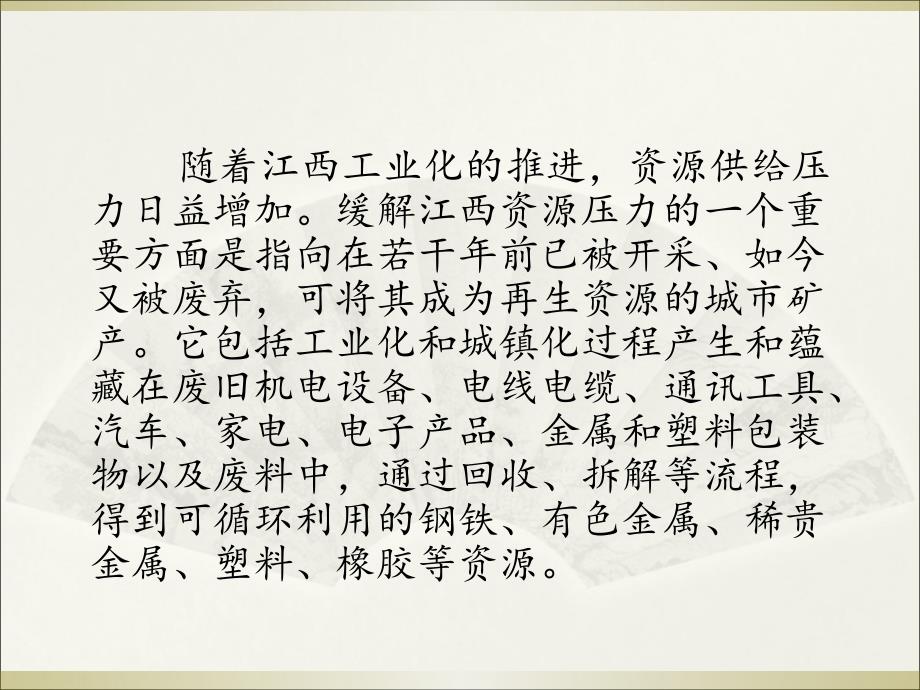 随着江西工业化的推进，资源供给压
力日益增加。缓解江西资源压力的一个重
要方面是指向在若干年前已被开采、如今
又被废弃，可将其成为再生资源的城市矿
产。它包括工业化和城镇化过程产生和蕴
藏在废旧机电设备、电线电缆、通讯工具、
汽车、家电、电子产品、金属和塑料包装
物以及废料中，通过回收、拆解等流程，
得到可循环利用的钢铁、有色金属、稀贵
金属、塑料、橡胶等资源。